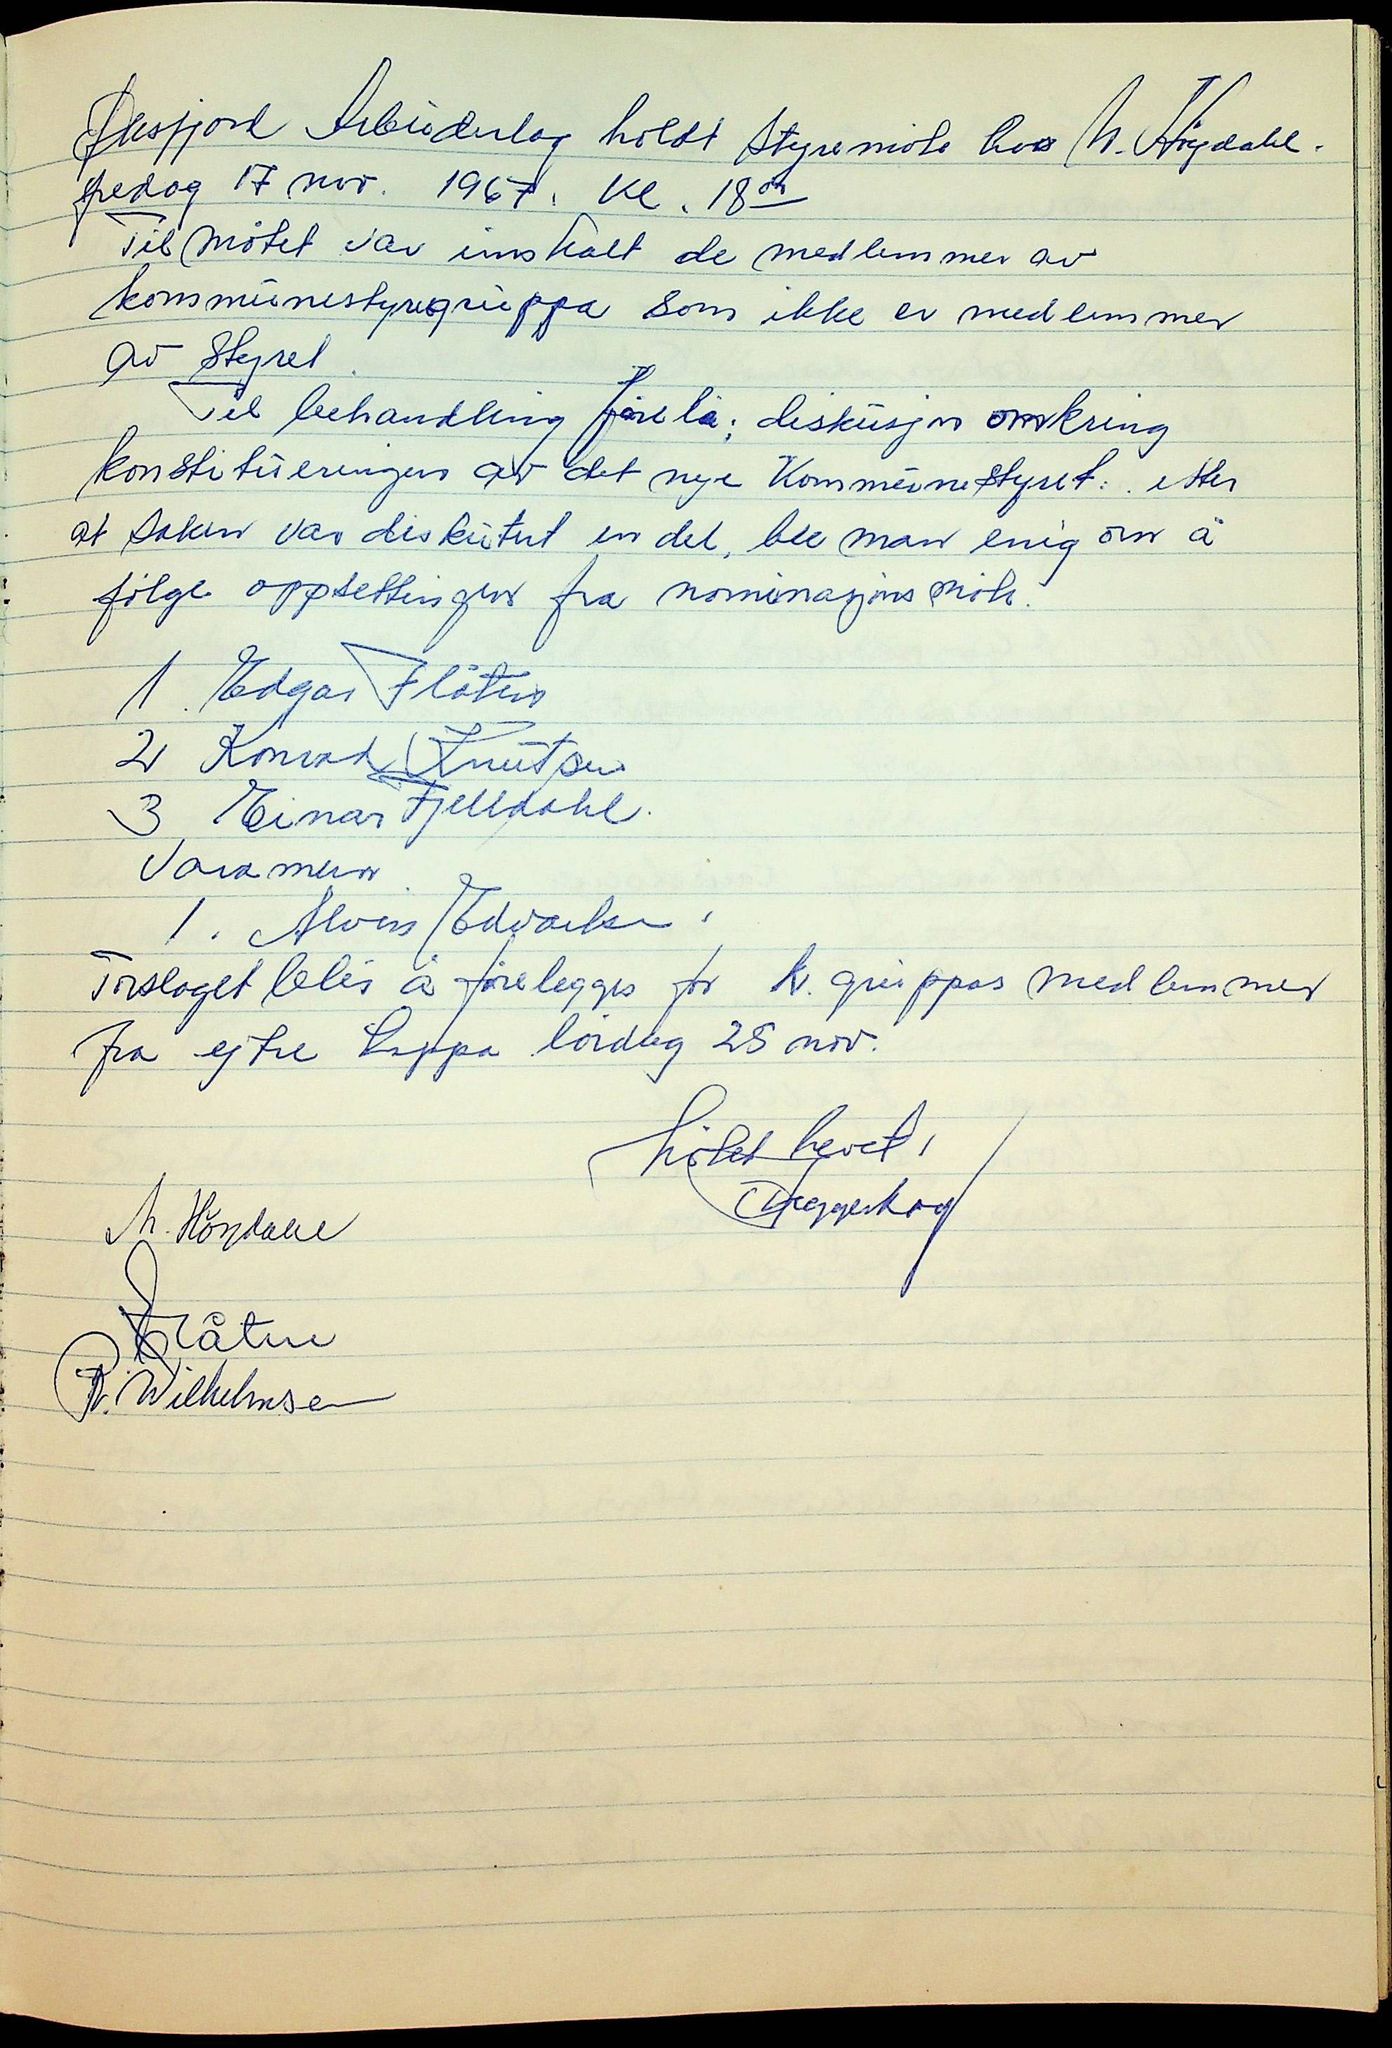 Øksfjord Arbeiderlag holdt styremöte hos M. Högdahl.
fredag 17 nov. 1967. Kl. 18⁰⁰
Til mötet var innkalt de medlemmer av
kommunestyregruppa som ikke er medlemmer
av Styret.
Til behandling förelå; diskusjon omkring
konstitueringen av det nye Kommunestyret. etter
at saken var diskutert en del, ble man enig om å
fölge oppsettingen fra nominasjonsmöte.
1. Edgar Flåten
2 Konrad Knutsen
3 Einar Fjelldahl.
Varamenn
1. Alvin Edvardsen.
Forslaget blir å forelegges for k. gruppas medlemmer
fra ejtre Loppa lördag 25 nov.
Mötet hevet,
M. Högdahl
Flåten
R. Wilhelmsen